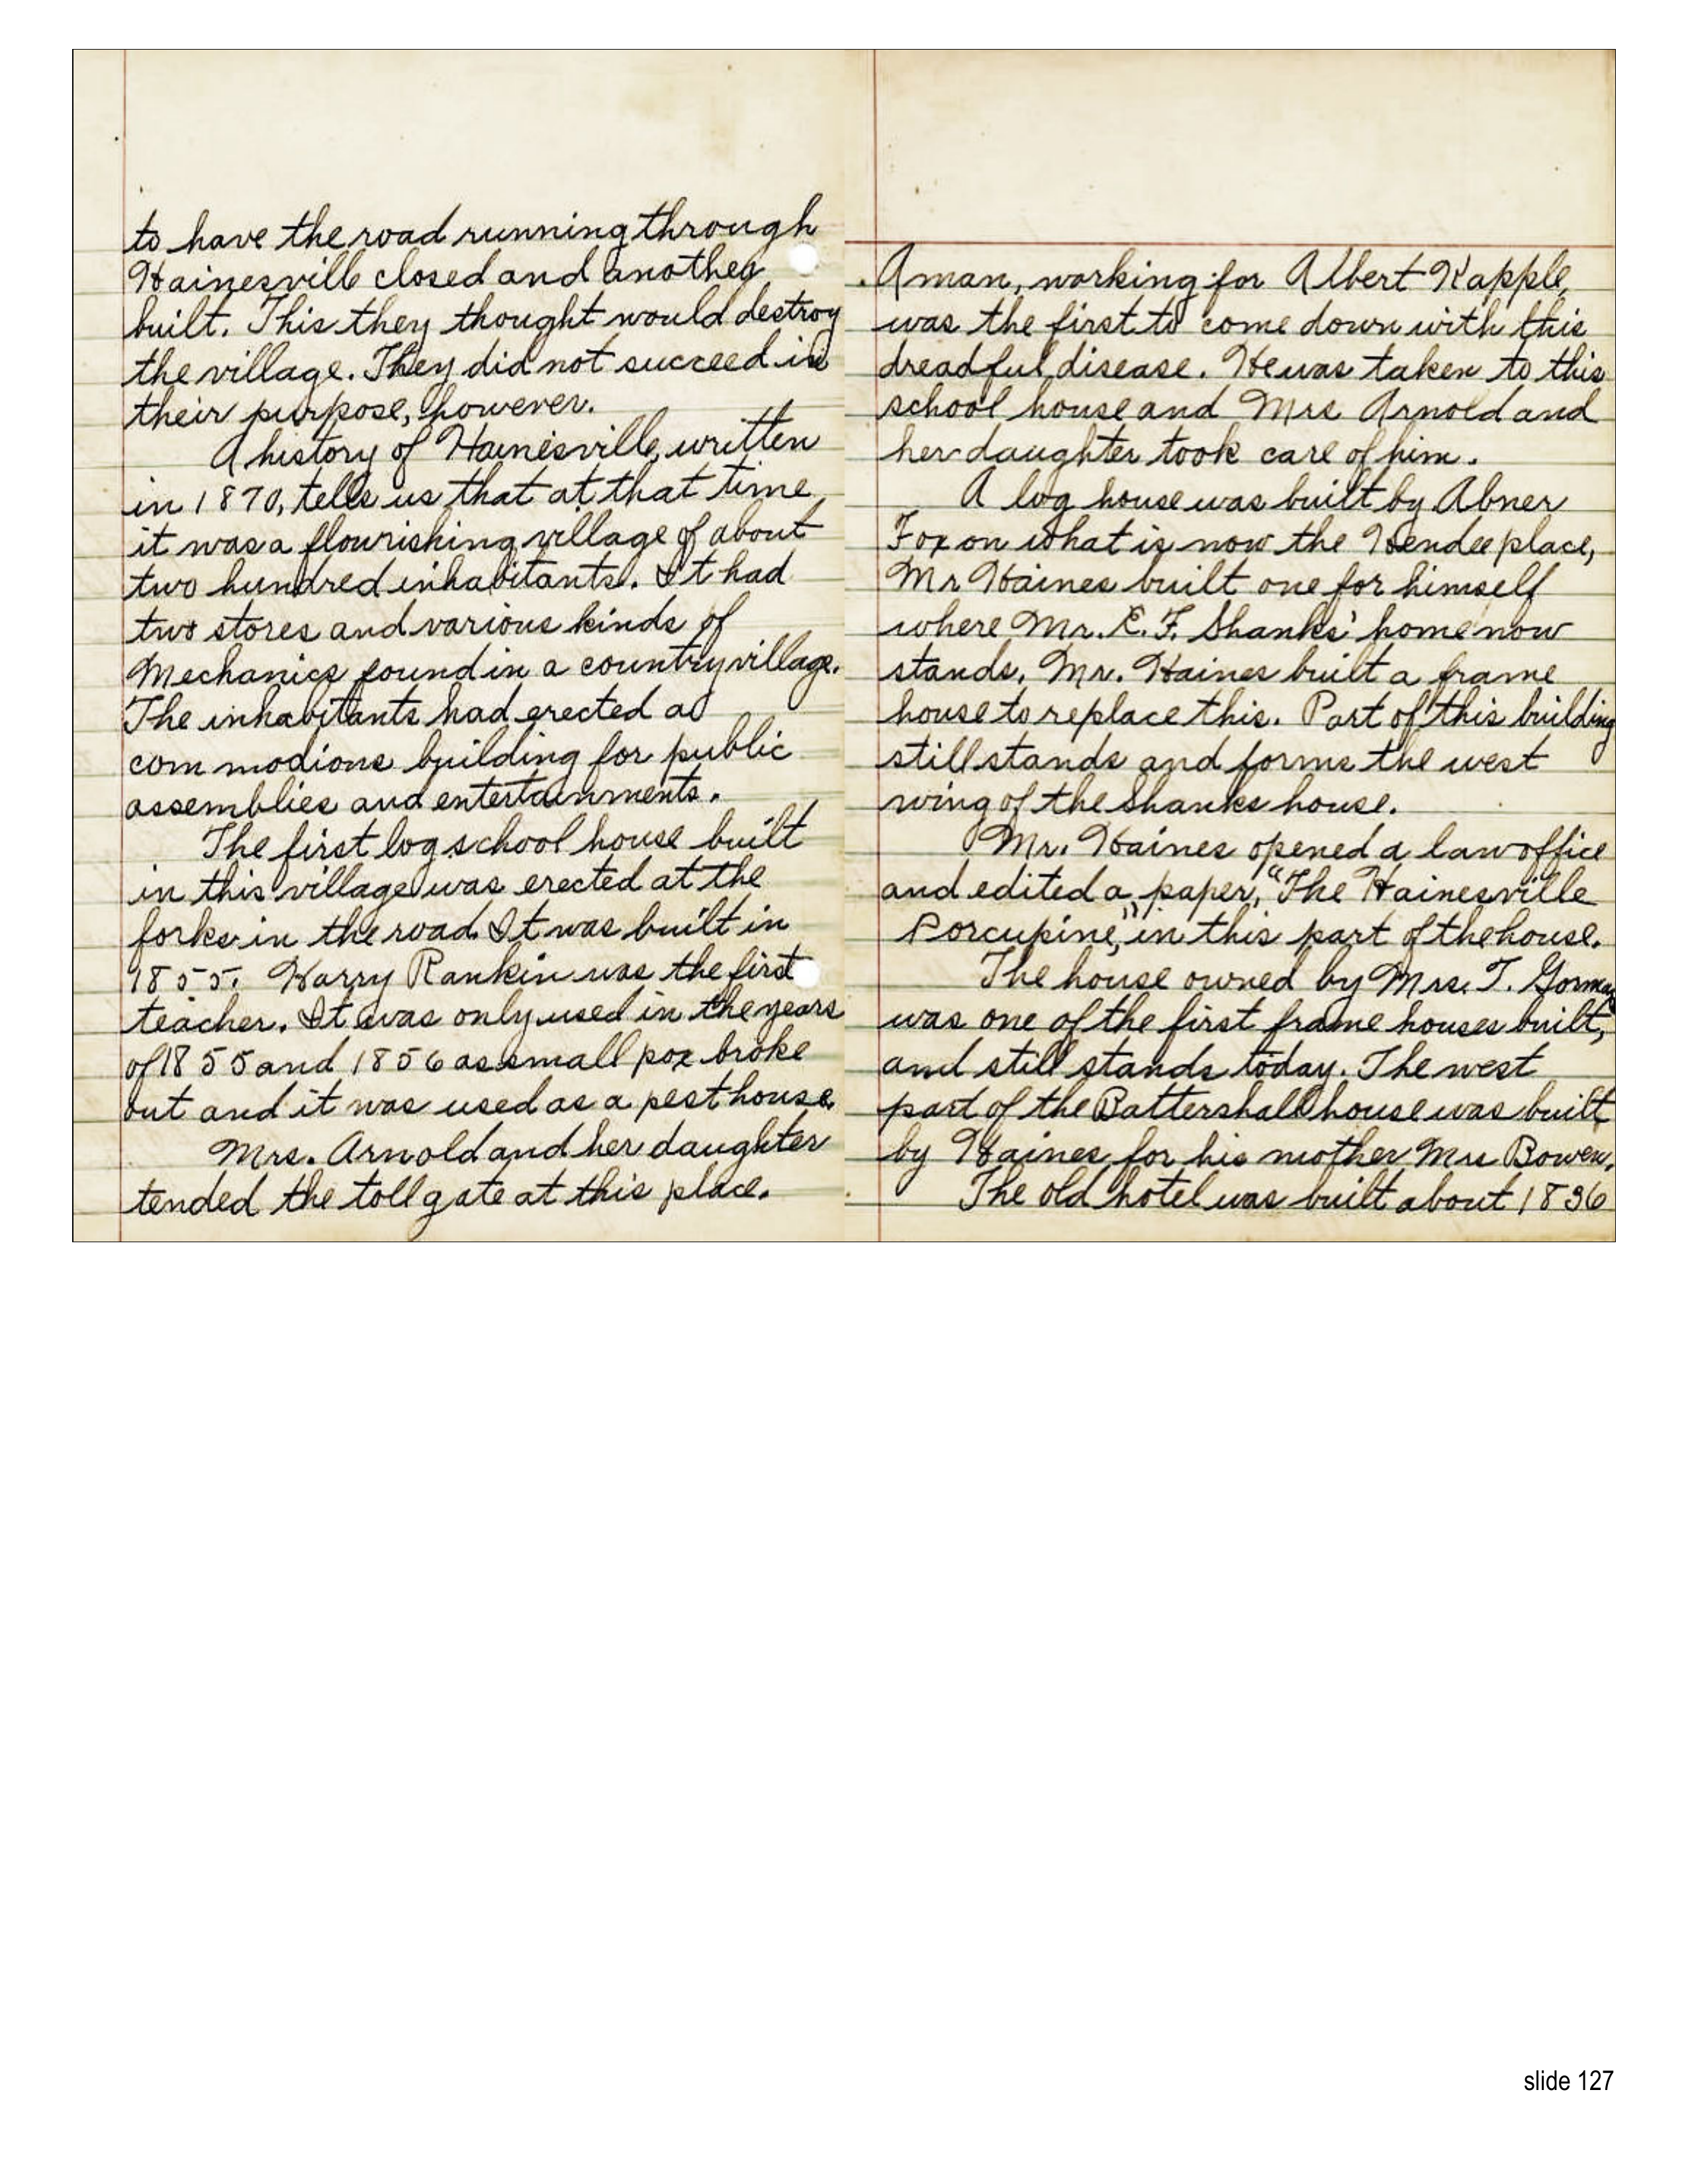 to have the road running through
Hainesville closed and another
built. This they thought would destroy
the village. They did not succeed in
their purpose, however.
A history of Hainesville, written
in 1870, tells us that at that time
it was a flourishing village of about
two hundred inhabitants. It had
two stores and various kinds of
Mechanics found in a country village.
The inhabitants had erected a
commodious building for public
assemblies and entertainments.
The first log school house built
in this village was erected at the
forks in the road. It was built in
1855. Harry Rankin was the first
teacher. It was only used in the years
of 1855 and 1856 as small pox broke
out and it was used as a pest house.
Mrs. Arnold and her daughter
tended the toll gate at this place.
A man, working for Albert Kapple,
was the first to come down with this
dreadful disease. He was taken to this
school house and Mrs Arnold and
her daughter took care of him.
A log house was built by Abner
Fox on what is now the Hendee place,
Mr Haines built one for himself
where Mr. E. F. Shanks' home now
stands. Mr. Haines built a frame
house to replace this. Part of this building
still stands and forms the west
wing of the Shanks house.
Mr. Haines opened a law office
and edited a paper, "The Hainesville
Porcupine," in this part of the house.
The house owned by Mrs. T. Gorman
was one of the first frame houses built,
and still stands today. The west
part of the Battershall house was built
by Haines for his mother Mrs Bowen.
The old hotel was built about 1836
slide 127